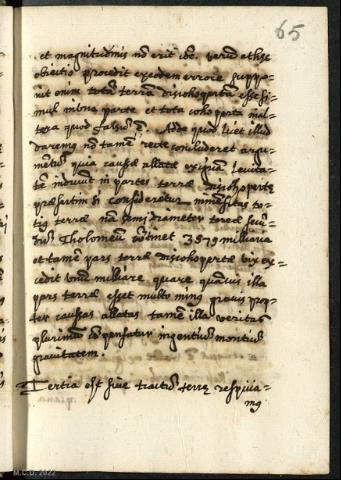 65
et magnitudinis nō erit idē. verum et hec
obiectio procedit ex eodem errore suppo=
nit enim totā terrā discohopertā esse si=
mul in una parte et tota cohoperta in al=
tera quod falsum ē. Adde quod licet illud
daremus nō tamē recte concluderet argu=
mentum quia causæ allatæ exiguā levita=
tē inducunt in partes terræ discohopertæ
præsertim si consideretur immensitas to=
tius terræ nā semidiameter terræ secū=
dum Tholomeum cōtinet 3579 miliaria
et tamē pars terræ discohopertæ vix ex=
cedit unum milliare, quare quamvis illa
pars terræ esset multo minus gravis prop=
ter causas allatas tamē illa veritas
plurimum cōpensatur ingentium montium
gravitatem.
Tertia est sive tractus terræ respicia=
mus
M.C.D. 2022